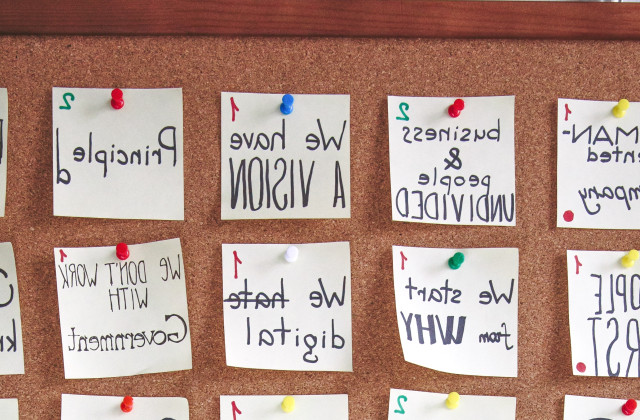 2
Principle
d
1
We have
A VISION
2
business
&
people
UNDIVIDED
1
MAN-
ented
mpany
1
We DON'T WORK
WITH
Government
1
We hate
digital
1
We start
from WHY
1
OPLE
RST
1
2